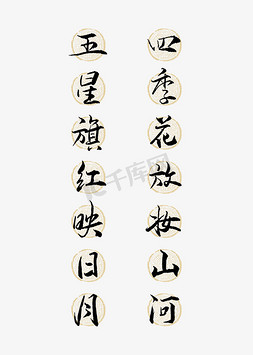 五星旗红映日月
四季花放妆山河
千库网